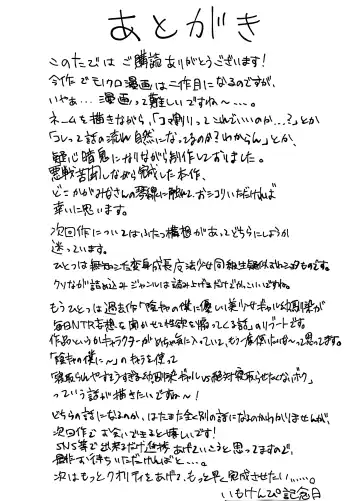 あとがき
このたびは ご購読ありがとうございます!
今作でモノクロ漫画は二作目になるのですが、
いやぁ… 漫画って難しいですね〜〜…。
ネームを描きながら、「コマ割りってこれでいいのか…?」とか
「コレって話の流れ自然になってるのか?わからん」とか、
疑心暗鬼になりながら制作しておりました。
悪戦苦闘しながら完成した本作、
どこかがみなさんの琴線に触れて、おシコりいただければ
幸いに思います。
次回作についてはふたつ構想があってどちらにしようか
迷っています。
ひとつは無知シチュ変身成長魔法少女同級生疑似おねショタものです。
もうひとつは過去作「陰キャの僕に優しい美少女ギャル幼馴染が
毎日NTR妄想を聞かせて性欲を煽ってくる話」のリブートです。
作品というかキャラクターがめちゃ気に入っていて、もう一度使いたいな〜って思ってます。
「陰キャの僕に〜」のキャラを使って
「寝取られやすそうすぎる幼馴染ギャルVS絶対寝取らせたくないボク」
っていう話が描きたいですね〜!
どちらの話になるのか、はたまた全く別の話になるのかわかりませんが、
次回作でお会いできると嬉しいです!
SNS等で出来るだけ進捗あげていこうと思ってますので、
お待ちいただければと…。
次はもっとクオリティをあげて、もっと早く完成させたい……。
いもけんぴ記念日